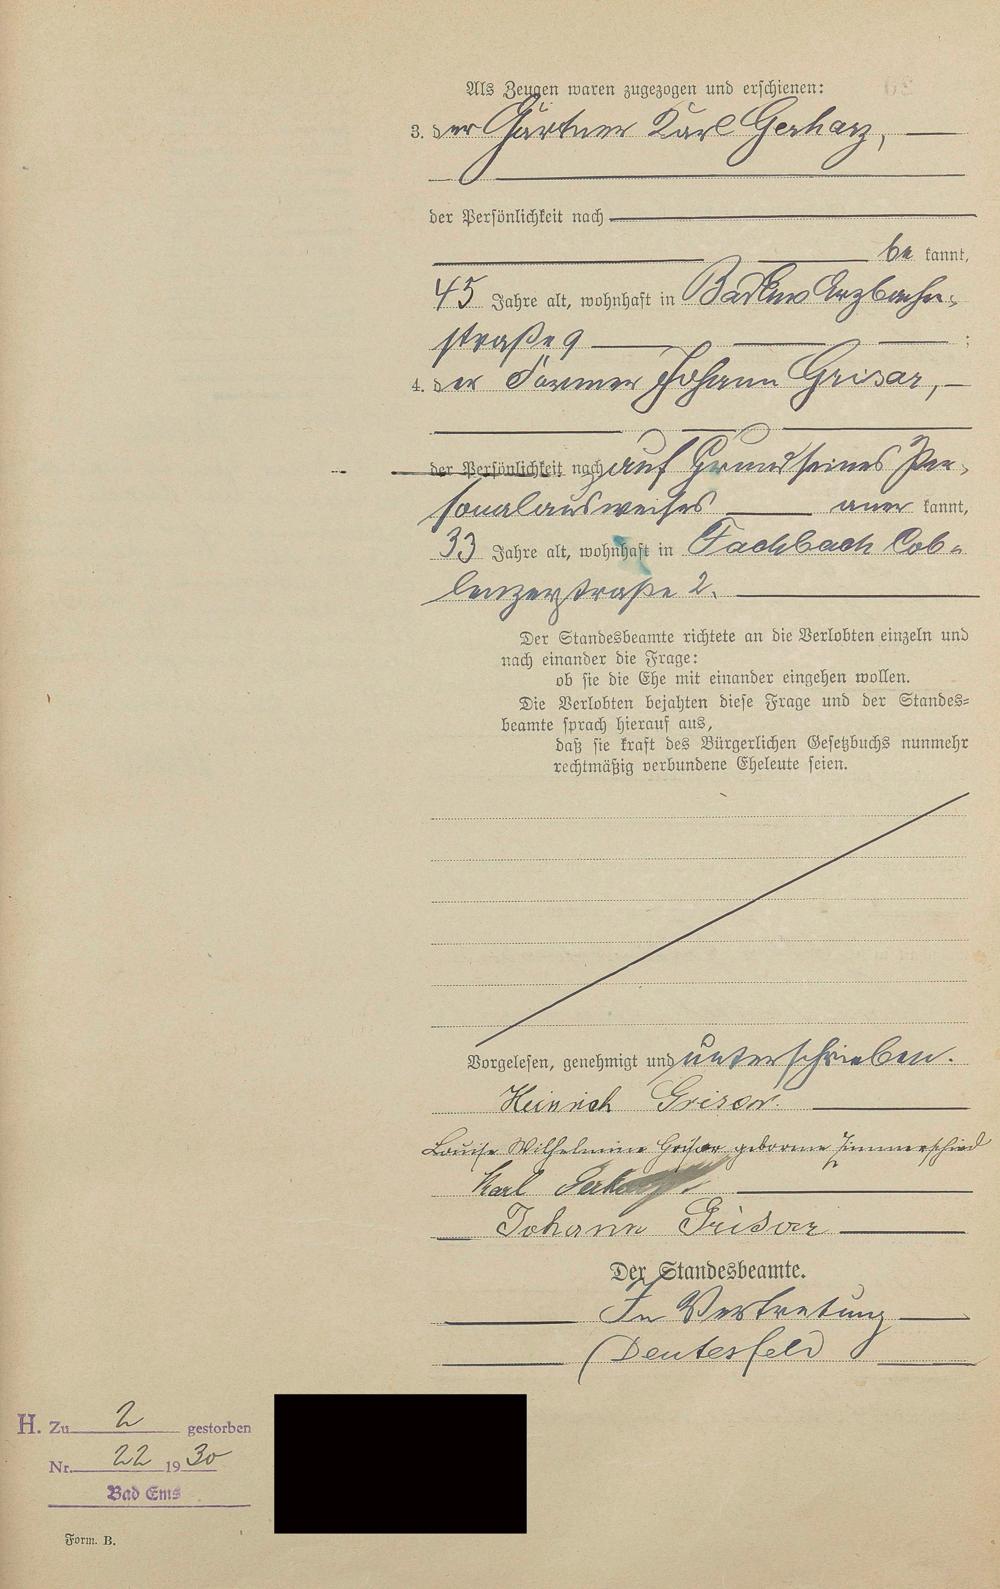 Als Zeugen waren zugezogen und erschienen:
3. der Gärtner Karl Gerharz,
der Persönlichkeit nach
be kannt,
45 Jahre alt, wohnhaft in Bad Ems Arzbacher-
straße 9 ;
4. der Former Johann Grisar,
der Persönlichkeit nach auf Grund seines Per-
sonalausweises aner kannt,
33 Jahre alt, wohnhaft in Fachbach Cob-
lenzerstraße 2.
Der Standesbeamte richtete an die Verlobten einzeln und
nach einander die Frage:
ob sie die Ehe mit einander eingehen wollen.
Die Verlobten bejahten diese Frage und der Standes-
beamte sprach hierauf aus,
daß sie kraft des Bürgerlichen Gesetzbuchs nunmehr
rechtmäßig verbundene Eheleute seien.
Vorgelesen, genehmigt und unterschrieben.
Heinrich Grisar.
Louise Wilhelmine Grisar geborene Zimmerschied
Karl Gerharz
Johann Grisar
Der Standesbeamte.
In Vertretung
Deutesfeld
H. Zu 2 gestorben
Nr. 22 1930
Bad Ems
Form. B.